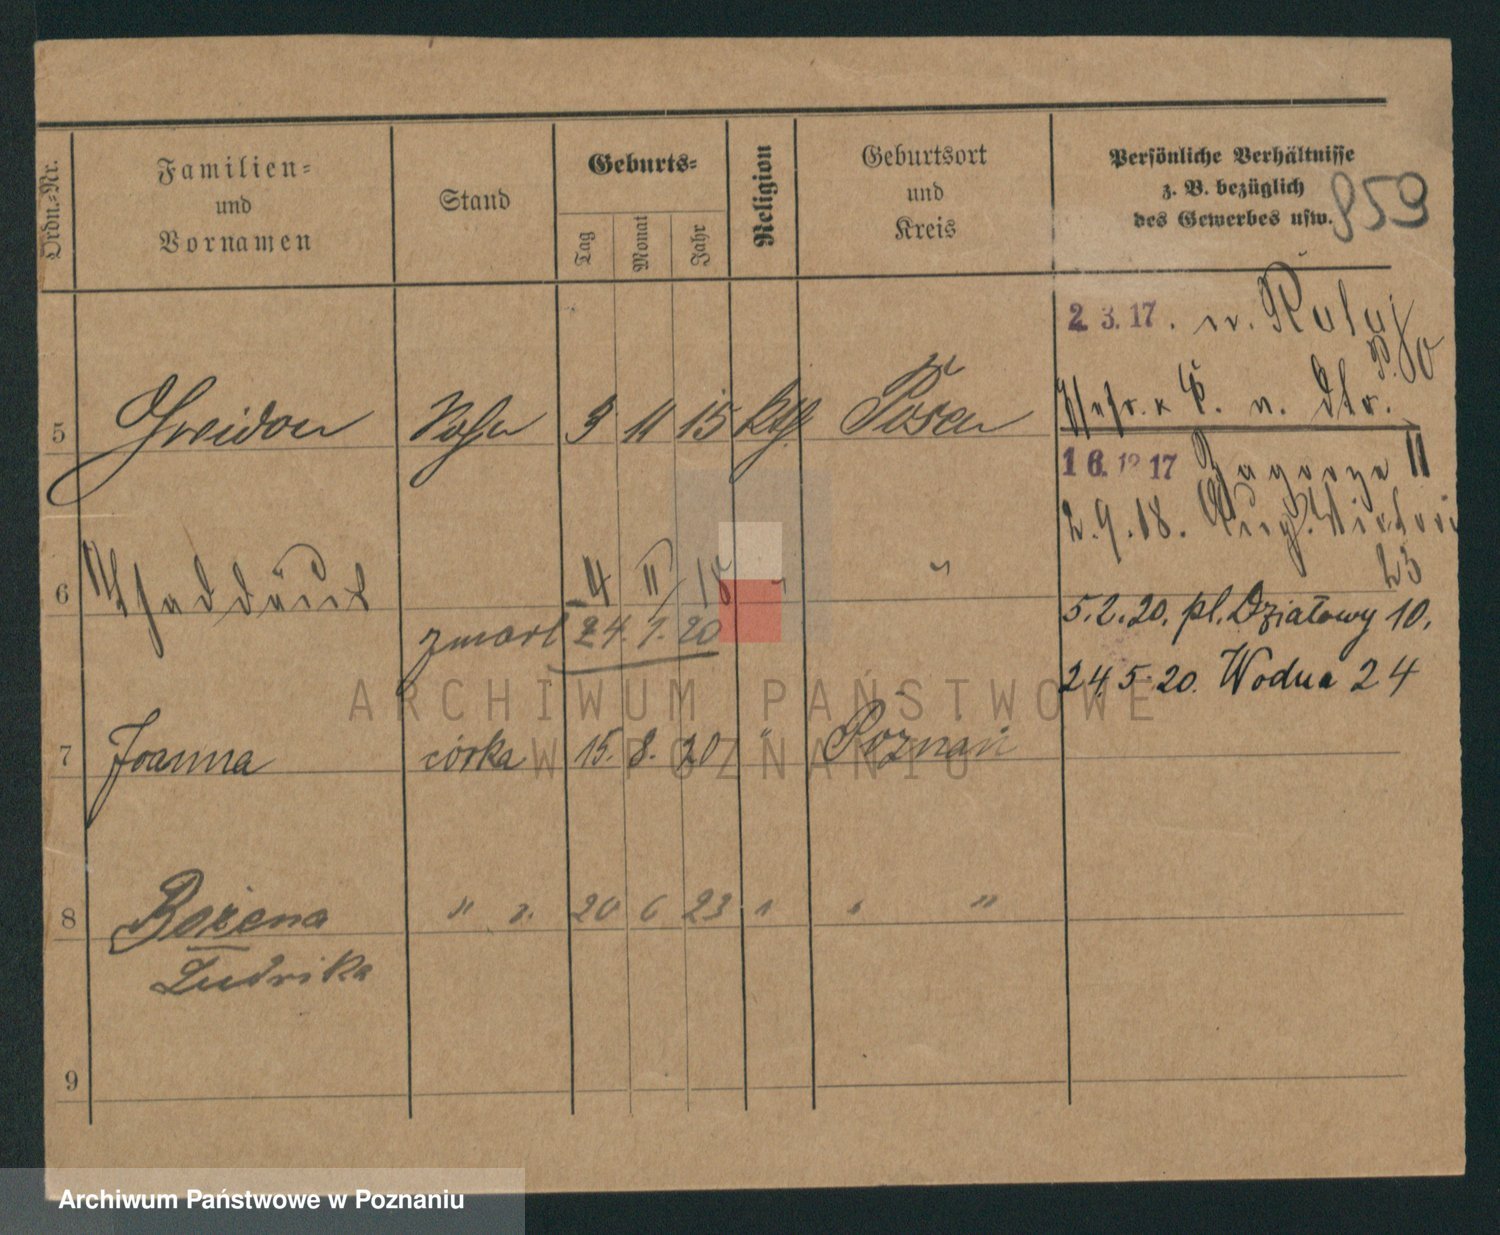 Ordn.-Nr.
Familien-
und
Vornamen
Stand
Geburts-
Tag
Monat
Jahr
Religion
Geburtsort
und
Kreis
Persönliche Verhältnisse
z. B. bezüglich
des Gewerbes usw.
959
2. 3. 17.
5 Gwidon Sohn 3 11 15 kth Posen
16. 12 17 Zagorze 11
2. 9. 18.
23
6 Thaddäus 4 II 18 "
5. 2. 20. pl. Działowy 10.
zmarł 24. 1. 20
24 5. 20. Wodna 24
7 Joanna córka 15. 8. 20 " Poznań
8 Bożena " " 20 6 23 " " "
Ludwika
9
ARCHIWUM PAŃSTWOWE
W POZNANIU
Archiwum Państwowe w Poznaniu